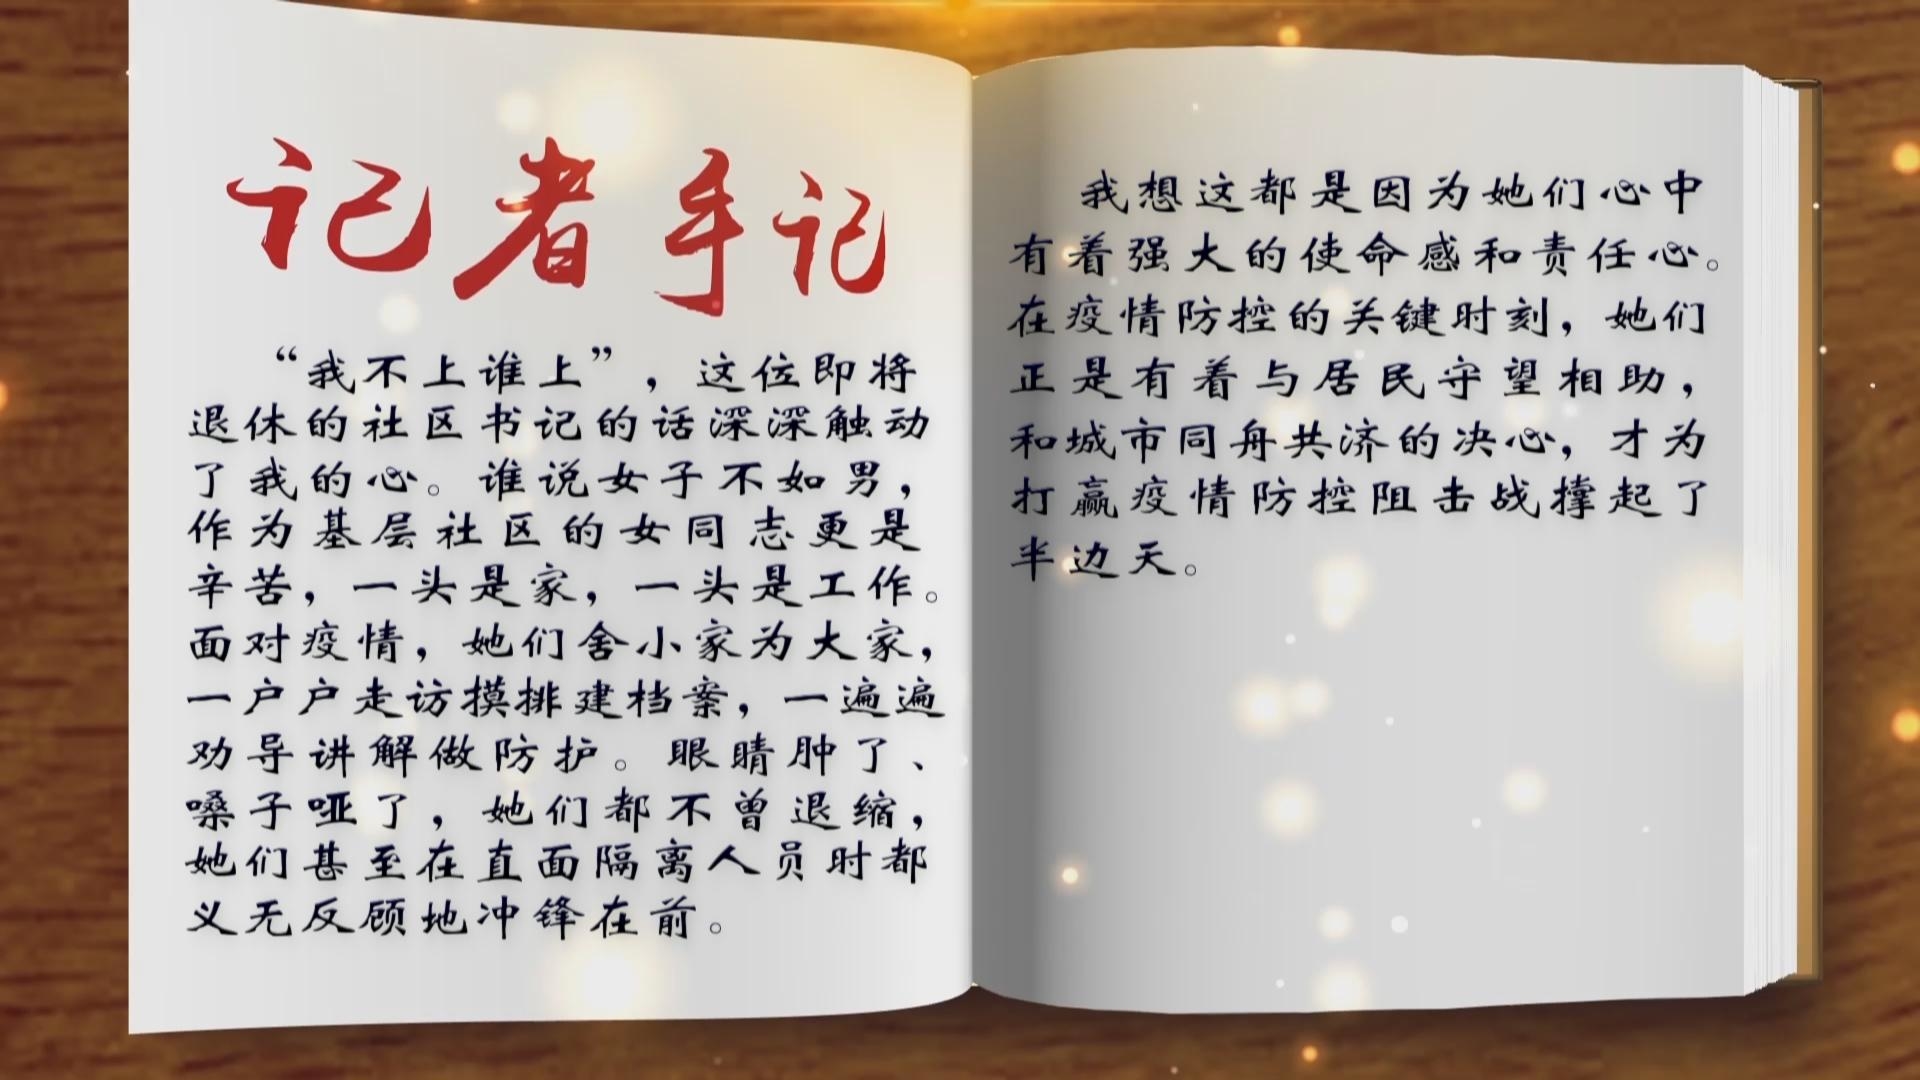 记者手记
“我不上谁上”，这位即将
退休的社区书记的话深深触动
了我的心。谁说女子不如男，
作为基层社区的女同志更是
辛苦，一头是家，一头是工作。
面对疫情，她们舍小家为大家，
一户户走访摸排建档案，一遍遍
劝导讲解做防护。眼睛肿了、
嗓子哑了，她们都不曾退缩，
她们甚至在直面隔离人员时都
义无反顾地冲锋在前。
我想这都是因为她们心中
有着强大的使命感和责任心。
在疫情防控的关键时刻，她们
正是有着与居民守望相助，
和城市同舟共济的决心，才为
打赢疫情防控阻击战撑起了
半边天。